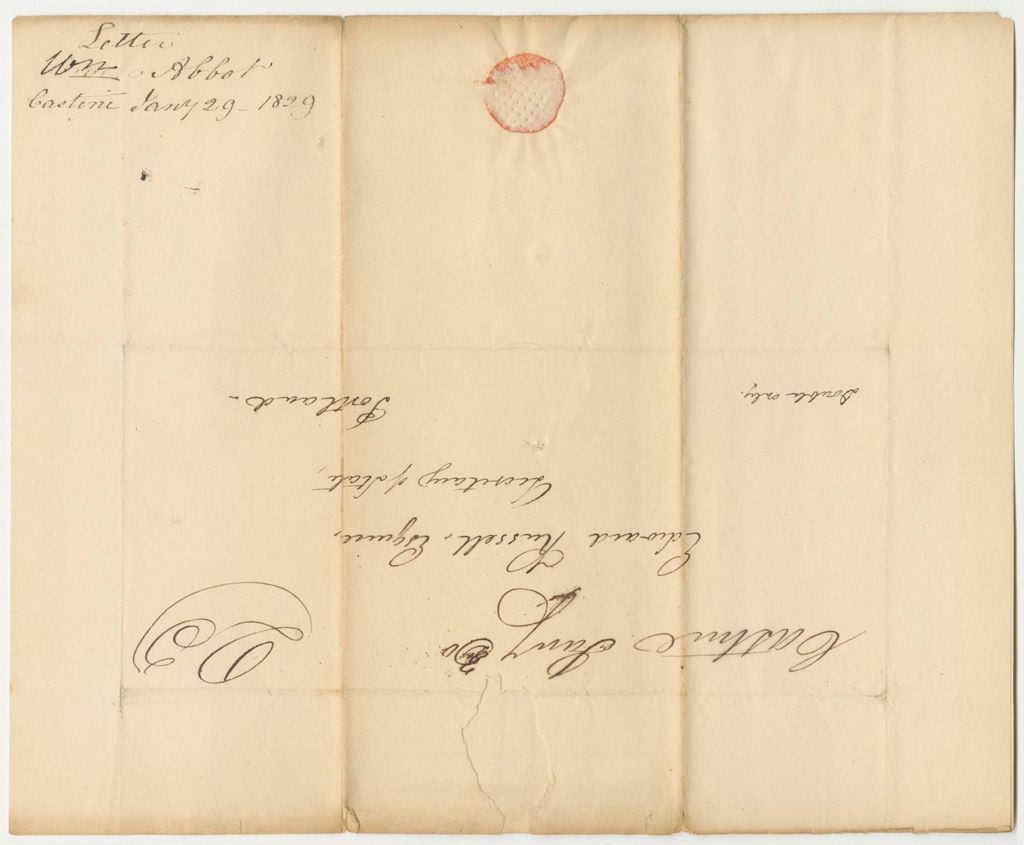 Letter
Wm Abbot
Castine Jany 29 - 1829
Castine Jany 30
Edward Russell, Esquire,
Secretary of State,
Portland -
Double only.